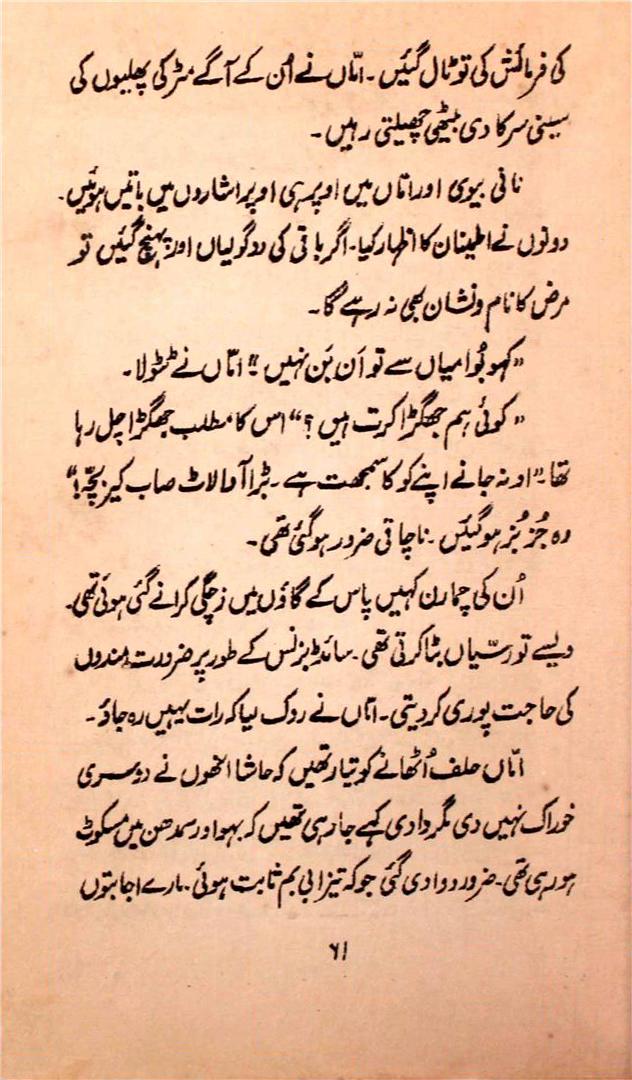 کی فرمائش کی تو ٹال گئیں ۔ اماّں نے اُن کے آگے مٹر کی پھلیوں کی
سینی سرکا دی بیٹھی چھیلتی رہیں ۔
نانی بیوی اور اماّں میں اوپر ہی اوپر اشاروں میں باتیں ہوئیں۔
دونوں نے اطمینان کا اظہار کیا۔ اگر باقی کی دو گولیاں اور پہنچ گئیں تو
مرض کا نام و نشان بھی نہ رہے گا ۔
”کہو بُوا میاں سے تو اَن بَن نہیں“ اماّں نے ٹٹولا ۔
”کوئی ہم جھگڑا کرت ہیں ؟“ اس کا مطلب جھگڑا چل رہا
تھا۔ ”او نہ جانے اپنے کو کا سمجھت ہے ۔ بڑا آوا لاٹ صاب کیر بچّہ !“
وہ جُز بُز ہو گئیں ۔ ناچاقی ضرور ہو گئی تھی ۔
اُن کی چمارن کہیں پاس کے گاؤں میں زچگی کرانے گئی ہوئی تھی۔
ویسے تو رسّیاں بٹا کرتی تھی ۔ سائڈ بزنس کے طور پر ضرورت مندوں
کی حاجت پوری کر دیتی ۔ اماّں نے روک لیا کہ رات یہیں رہ جاؤ ۔
اماّں حلف اُٹھانے کو تیار تھیں کہ حاشا انھوں نے دوسری
خوراک نہیں دی مگر دادی کہے جا رہی تھیں کہ بہو اور سمدھن میں مسکوٹ
ہو رہی تھی ۔ ضرور دوا دی گئی جو کہ تیزابی بم ثابت ہوئی ۔ مارے اجابتوں
۶۱